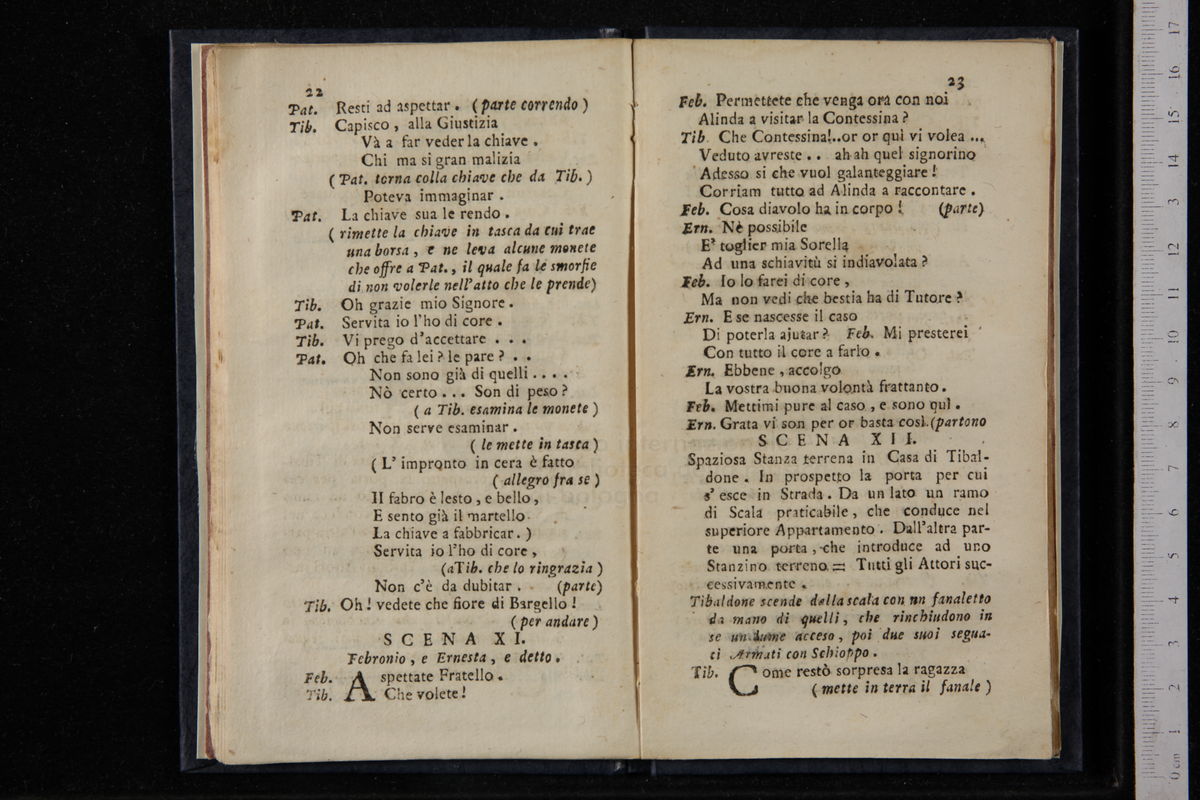 22
Pat. Resti ad aspettar. (parte correndo)
Tib. Capisco, alla Giustizia
Và a far veder la chiave.
Chi ma si gran malizia
(Pat. torna colla chiave che da Tib.)
Poteva immaginar.
Pat. La chiave sua le rendo.
(rimette la chiave in tasca da cui trae
una borsa, e ne leva alcune monete
che offre a Pat., il quale fa le smorfie
di non volerle nell'atto che le prende)
Tib. Oh grazie mio Signore.
Pat. Servita io l'ho di core.
Tib. Vi prego d'accettare . . .
Pat. Oh che fa lei? le pare? . .
Non sono già di quelli . . . .
Nò certo . . . Son di peso?
(a Tib. esamina le monete)
Non serve esaminar.
(le mette in tasca)
(L' impronto in cera è fatto
(allegro fra se)
Il fabro è lesto, e bello,
E sento già il martello
La chiave a fabbricar.)
Servita io l'ho di core,
(a Tib. che lo ringrazia)
Non c'è da dubitar. (parte)
Tib. Oh! vedete che fiore di Bargello!
(per andare)
SCENA XI.
Febronio, e Ernesta, e detto.
Feb. Aspettate Fratello.
Tib. Che volete!
23
Feb. Permettete che venga ora con noi
Alinda a visitar la Contessina?
Tib. Che Contessina!..or or quì vi volea ...
Veduto avreste . . ah ah quel signorino
Adesso si che vuol galanteggiare!
Corriam tutto ad Alinda a raccontare.
Feb. Cosa diavolo ha in corpo! (parte)
Ern. Nè possibile
E' toglier mia Sorella
Ad una schiavitù si indiavolata?
Feb. Io lo farei di core,
Ma non vedi che bestia ha di Tutore?
Ern. E se nascesse il caso
Di poterla ajutar? Feb. Mi presterei
Con tutto il core a farlo.
Ern. Ebbene, accolgo
La vostra buona volontà frattanto.
Feb. Mettimi pure al caso, e sono quì.
Ern. Grata vi son per or basta così. (partono
SCENA XII.
Spaziosa Stanza terrena in Casa di Tibal-
done. In prospetto la porta per cui
s' esce in Strada. Da un lato un ramo
di Scala praticabile, che conduce nel
superiore Appartamento. Dall'altra par-
te una porta, che introduce ad uno
Stanzino terreno = Tutti gli Attori suc-
cessivamente.
Tibaldone scende dalla scala con un fanaletto
da mano di quelli, che rinchiudono in
se un lume acceso, poi due suoi segua-
ci Armati con Schioppo.
Tib. Come restò sorpresa la ragazza
(mette in terra il fanale)